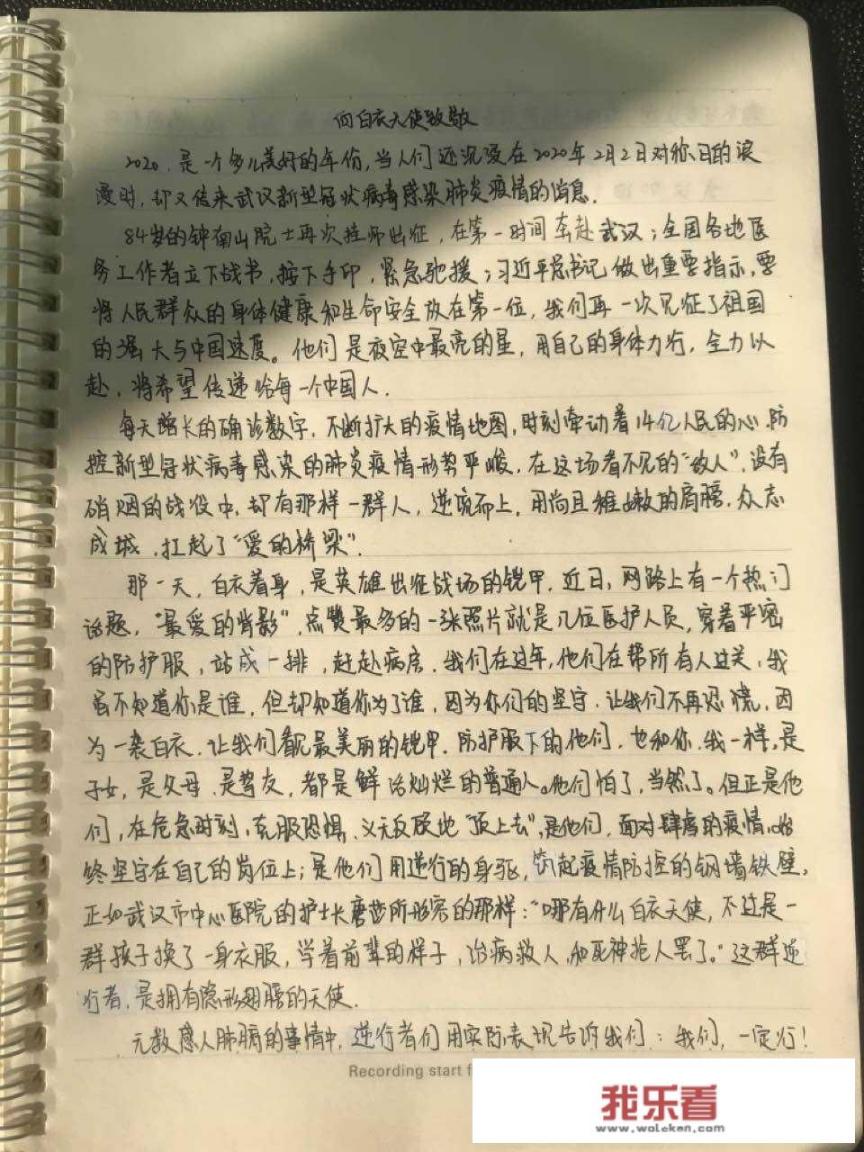 向白衣天使致敬
2020，是一个多么美好的年份，当人们还沉浸在2020年2月2日对称日的浪
漫时，却又传来武汉新型冠状病毒感染肺炎疫情的消息．
84岁的钟南山院士再次挂师出征，在第一时间奔赴武汉；全国各地医
务工作者立下战书，按下手印，紧急驰援；习近平总书记做出重要指示，要
将人民群众的身体健康和生命安全放在第一位，我们再一次见证了祖国
的强大与中国速度。他们是夜空中最亮的星，用自己的身体力行，全力以
赴，将希望传递给每一个中国人．
每天增长的确诊数字，不断扩大的疫情地图，时刻牵动着14亿人民的心．防
控新型冠状病毒感染的肺炎疫情形势严峻，在这场看不见的“敌人”，没有
硝烟的战役中，却有那样一群人，逆境而上，用尚且稚嫩的肩膀，众志
成城，扛起了“爱的桥梁”．
那一天，白衣着身，是英雄出征战场的铠甲．近日，网路上有一个热门
话题，“最爱的背影”，点赞最多的一张照片就是几位医护人员，穿着严密
的防护服，站成一排，赶赴病房．我们在过年，他们在帮所有人过关，我
虽不知道你是谁，但却知道你为了谁，因为你们的坚守，让我们不再恐慌，因
为一袭白衣，让我们看见最美丽的铠甲．防护服下的他们，也和你、我一样，是
子女，是父母，是挚友，都是鲜活灿烂的普通人。他们怕了，当然了。但正是他
们，在危急时刻，克服恐惧，义无反顾地“顶上去”，是他们，面对肆虐的疫情，始
终坚守在自己的岗位上；是他们用逆行的身躯，筑起疫情防控的钢墙铁壁，
正如武汉市中心医院的护士长唐莎所形容的那样：“哪有什么白衣天使，不过是一
群孩子换了一身衣服，学着前辈的样子，治病救人，和死神抢人罢了。”这群逆
行者，是拥有隐形翅膀的天使．
无数感人肺腑的事情中，逆行者们用实际表现告诉我们：我们，一定行！
Recording start f
我乐看
www.woleken.com